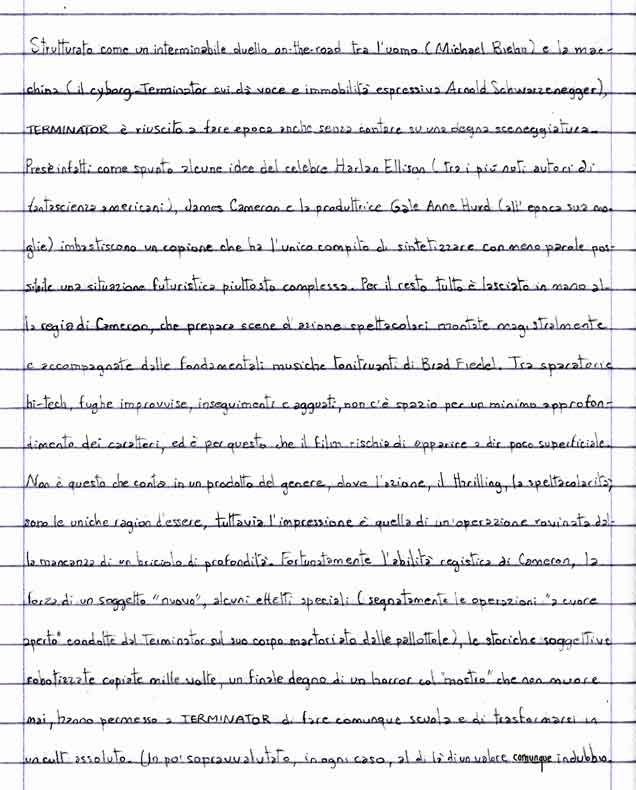 Strutturato come un interminabile duello on-the-road tra l'uomo (Michael Biehn) e la mac-
china (il cyborg-Terminator cui dà voce e immobilità espressiva Arnold Schwarzenegger),
TERMINATOR è riuscito a fare epoca anche senza contare su una degna sceneggiatura.
Presè infatti come spunto alcune idee del celebre Harlan Ellison (tra i più noti autori di
fantascienza americani), James Cameron e la produttrice Gale Anne Hurd (all'epoca sua mo-
glie) imbastiscono un copione che ha l'unico compito di sintetizzare con meno parole pos-
sibile una situazione futuristica piuttosto complessa. Per il resto tutto è lasciato in mano al-
la regia di Cameron, che prepara scene d'azione spettacolari montate magistralmente
e accompagnate dalle fondamentali musiche tonitruanti di Brad Fiedel. Tra sparatorie
hi-tech, fughe improvvise, inseguimenti e agguati, non c'è spazio per un minimo approfon-
dimento dei caratteri, ed è per questo che il film rischia di apparire a dir poco superficiale.
Non è questo che conta in un prodotto del genere, dove l'azione, il thrilling, la spettacolarità,
sono le uniche ragion d'essere, tuttavia l'impressione è quella di un'operazione rovinata dal-
la mancanza di un briciolo di profondità. Fortunatamente l'abilità registica di Cameron, la
forza di un soggetto "nuovo", alcuni effetti speciali (segnatamente le operazioni "a cuore
aperto" condotte dal Terminator sul suo corpo martoriato dalle pallottole), le storiche soggettive
robotizzate copiate mille volte, un finale degno di un horror col "mostro" che non muore
mai, hanno permesso a TERMINATOR di fare comunque scuola e di trasformarsi in
un cult assoluto. Un po' sopravvalutato, in ogni caso, al di là di un valore comunque indubbio.